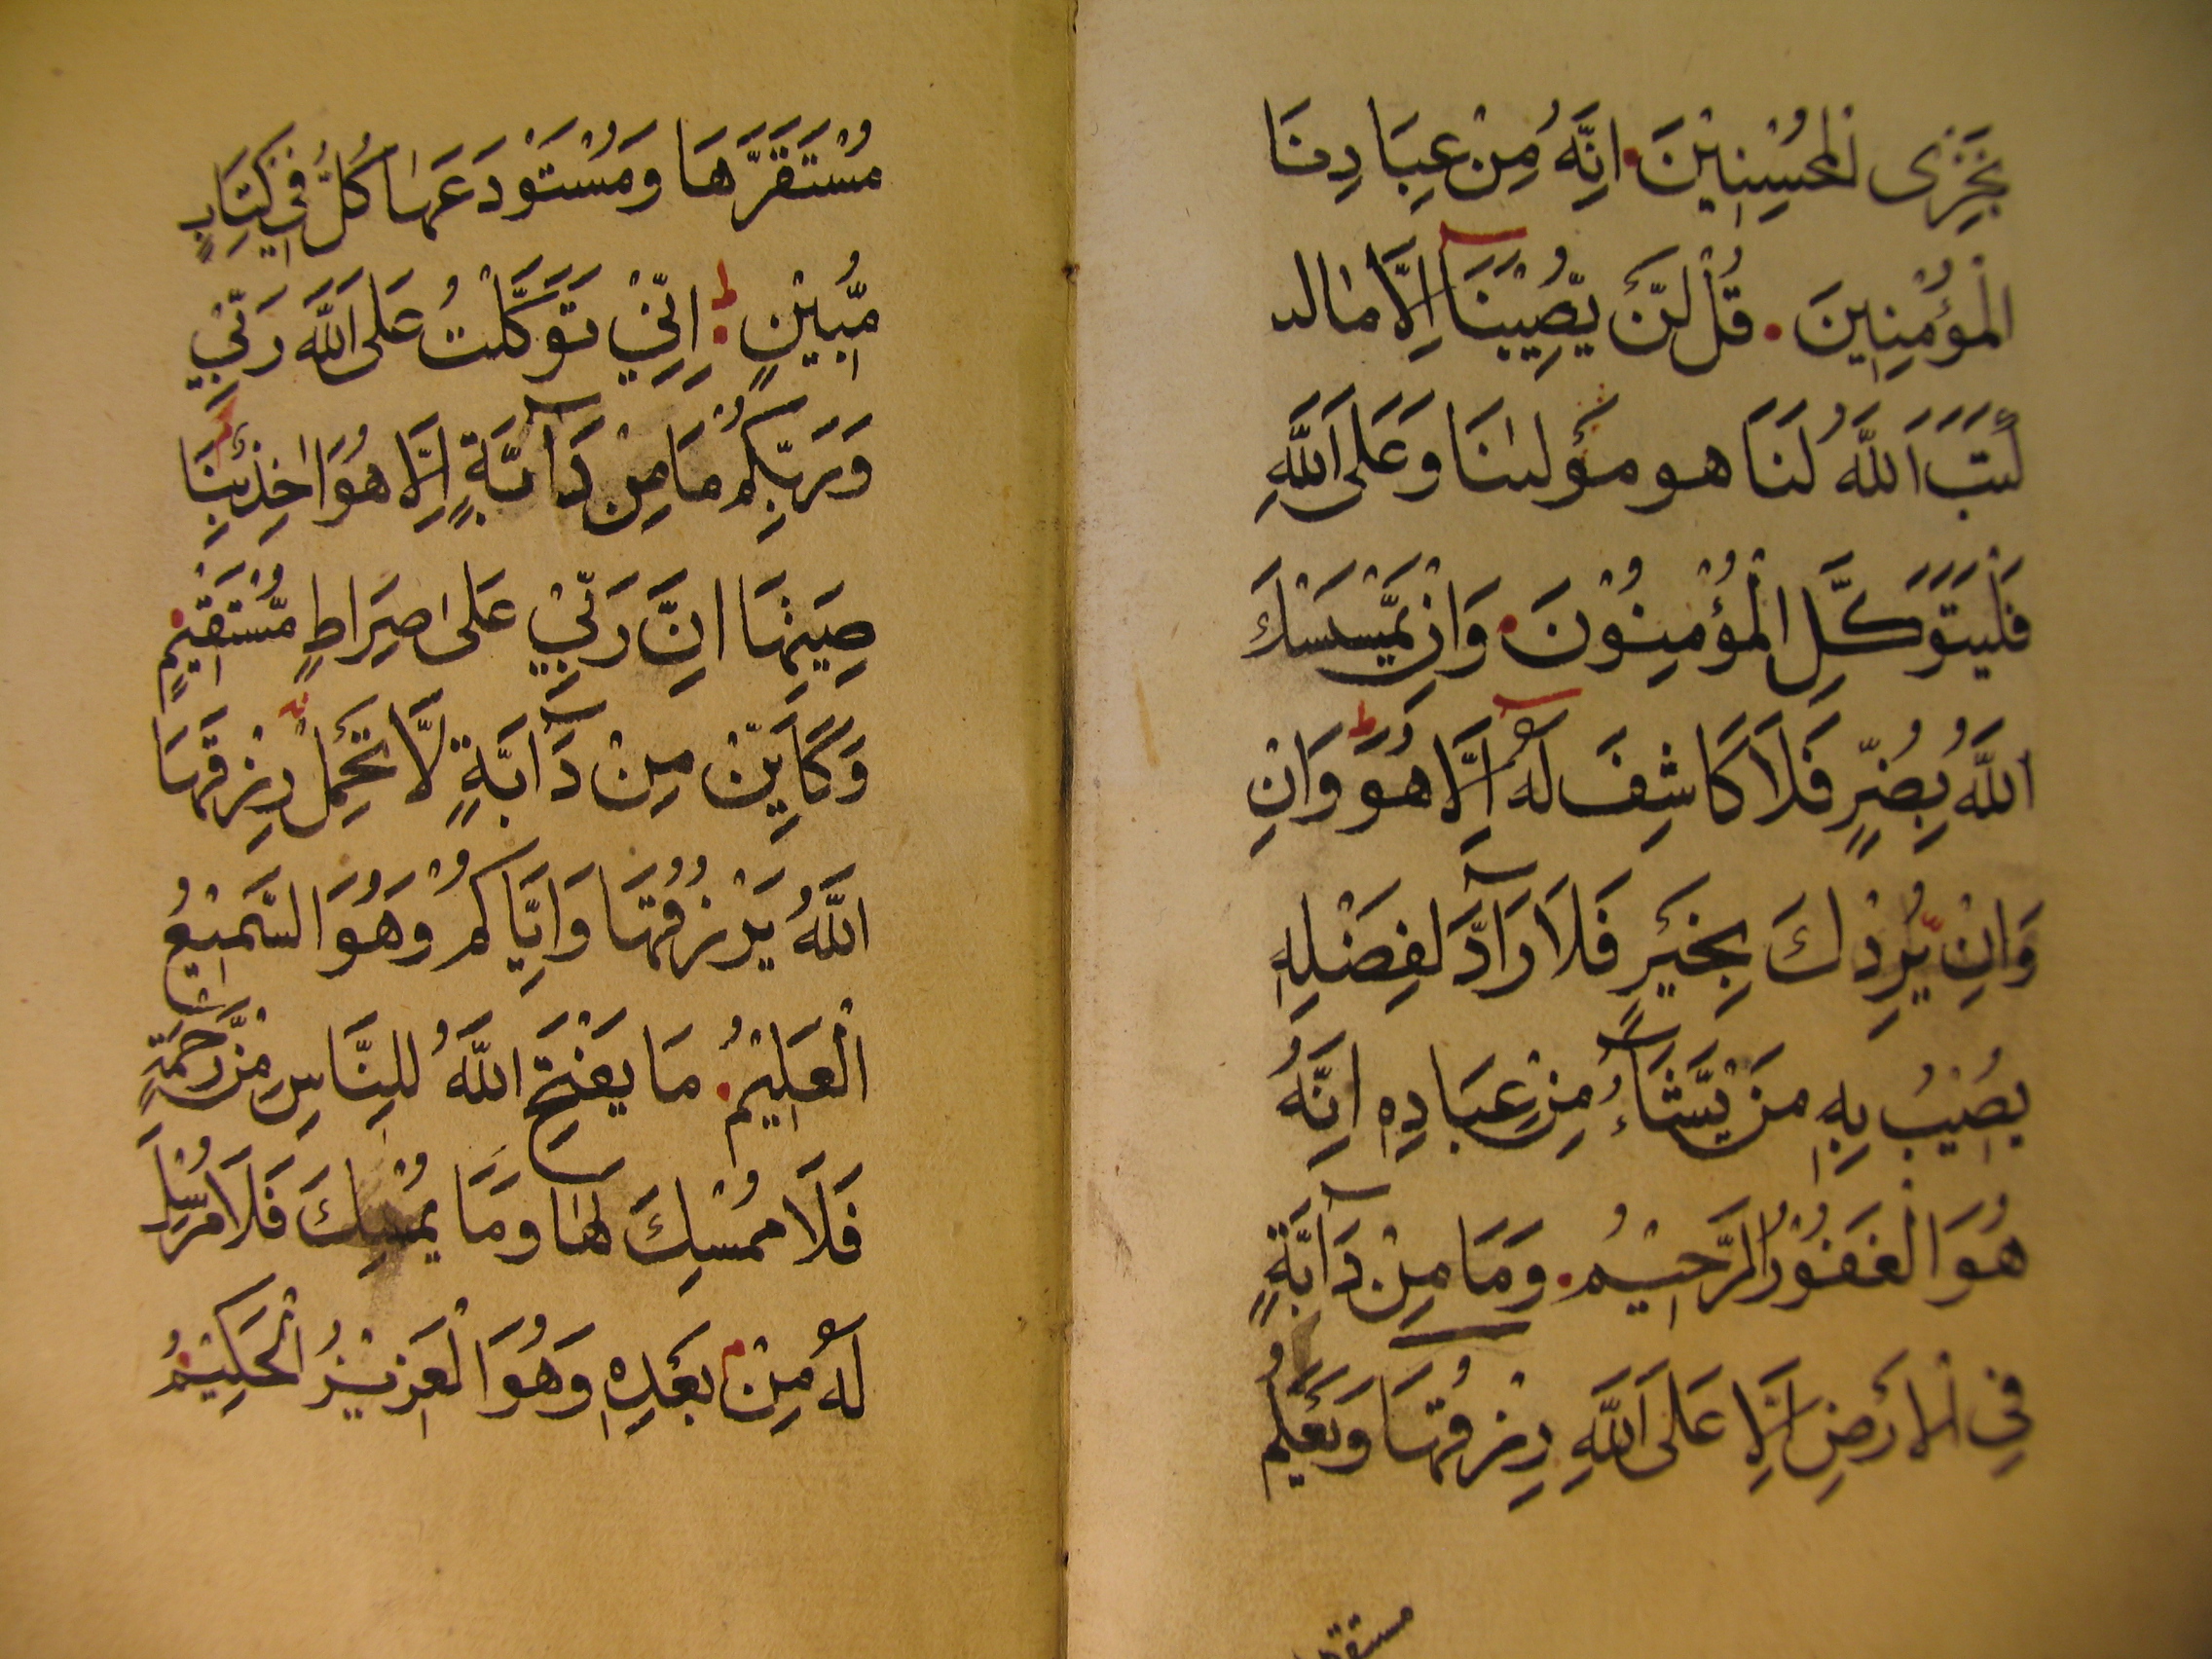 نَجْزِى الْمُحْسِنِيْنَ۰ اِنَّهُ مِنْ عِبَادِنَا
الْمُؤْمِنِيْنَ ۰ قُلْ لَّنْ يُّصِيْبَنَآ اِلَّا مَالد
كَتَبَ اَللّٰهُ لَنَا هو مَوْلٰىنَا وَعَلَى اَللّٰهِ
فَلْيَتَوَكَّلِ الْمُؤْمِنُوْنَ۰ وَاِنْ يَّمْسَسْكَ
اللّٰهُ بِضُرٍّ فَلَا كَاشِفَ لَهٗٓ اِلَّا هُوَ ط وَاِنْ
وَاِنْ يُّرِدْكَ بِخَيْرٍ فَلَا رَآدَّ لِفَضْلِهٖ
يُصِيْبُ بِهٖ مَنْ يَّشَآءُ مِنْ عِبَادِهٖ اِنَّهُ
هُوَ الْغَفُوْرُ الرَّحِيْمُ ۰ وَمَا مِنْ دَآبَّةٍ
فِي الْاَرْضِ اِلَّا عَلَى اَللّٰهِ رِزْقُهَا وَيَعْلَمُ
مستقر
مُسْتَقَرَّهَا وَمُسْتَوْدَعَهَا كُلٌّ فِيْ كِتَابٍ
مُّبِيْنٍ ط۰ اِنِّيْ تَوَكَّلْتُ عَلَى اللّٰهِ رَبِّيْ
وَرَبِّكُمْ مَا مِنْ دَآبَّةٍ اِلَّا هُوَ اٰخِذٌ بِنَا
صِيَتِهَا اِنَّ رَبِّيْ عَلٰى صِرَاطٍ مُّسْتَقِيْمٍ۰
وَكَاَيِّنْ مِنْ دَآبَّةٍ لَّا تَحْمِلُ رِزْقَهَا
اللّٰهُ يَرْزُقُهَا وَاِيَّاكُمْ وَهُوَ السَّمِيْعُ
الْعَلِيْمُ۰ مَا يَفْتَحِ اللّٰهُ لِلنَّاسِ مِنْ رَّحْمَةٍ
فَلَا مُمْسِكَ لَهَا وَمَا يُمْسِكْ فَلَا مُرْسِلَ
لَهٗ مِنْ بَعْدِهٖ وَهُوَ الْعَزِيْزُ الْحَكِيْمُ۰